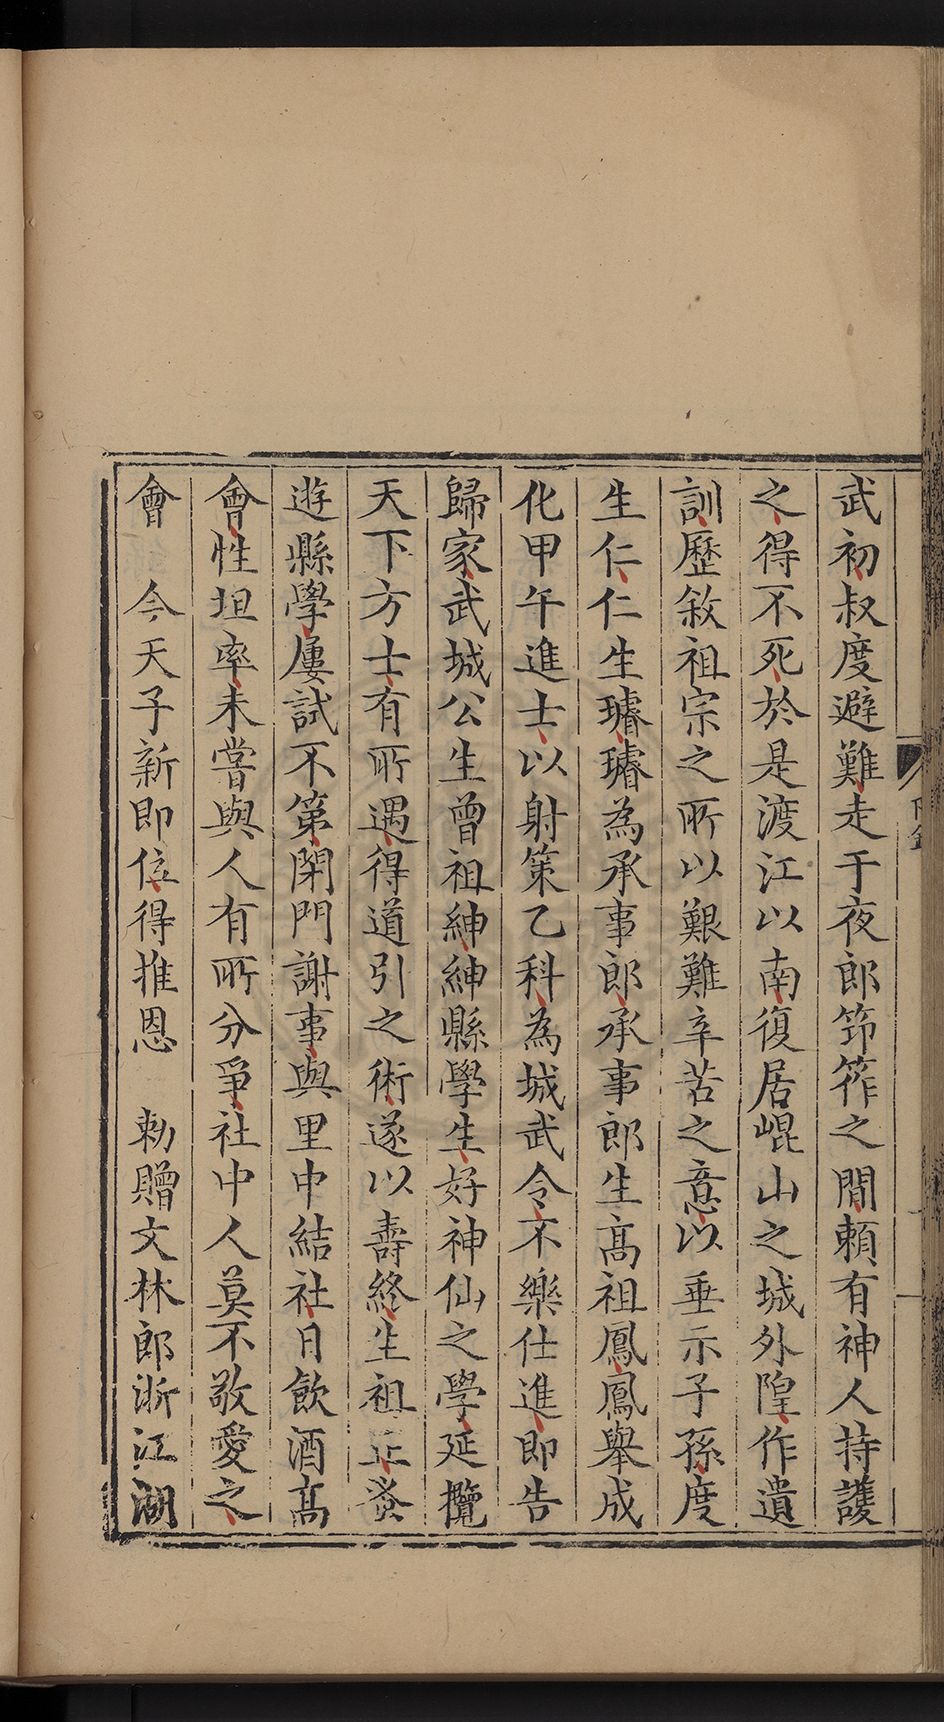 武初叔度避難走于夜郎笻筰之間頼有神人持護
之得不死於是渡江以南復居崐山之城外隍作遺
訓歷敘祖宗之所以艱難辛苦之意以垂示子孫度
生仁仁生璿璿為承事郎承事郎生高祖鳳鳳舉成
化甲午進士以射策乙科為城武令不樂仕進即告
歸家武城公生曾祖紳紳縣學生好神仙之學延攬
天下方士有所遇得道引之術遂以壽終生祖正蚤
遊縣學屢試不第閉門謝事與里中結社日飲酒高
會性坦率未嘗與人有所分爭社中人莫不敬愛之
會　今天子新即位得推恩　勅贈文林郎浙江湖